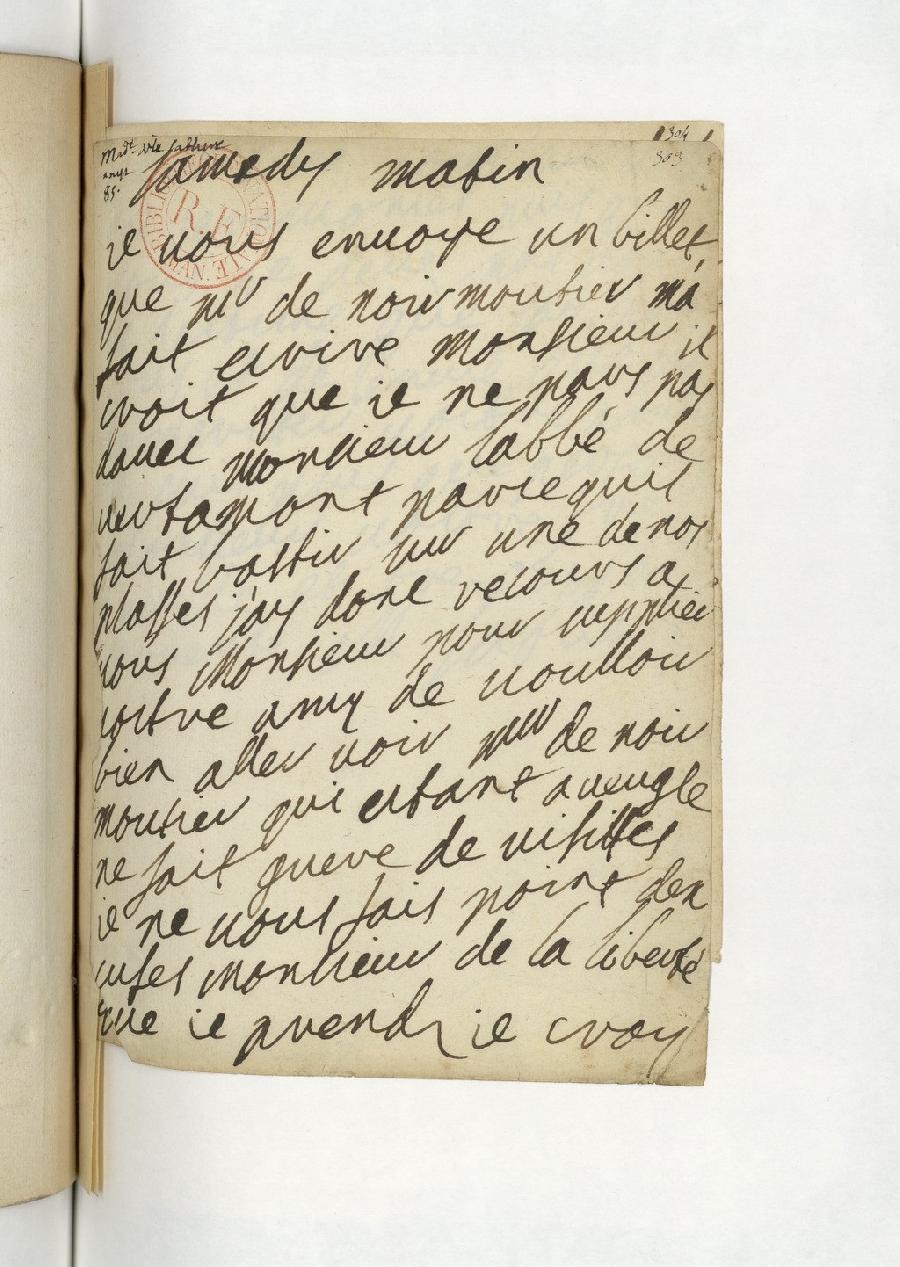 304
303
85.
samedy matin
je vous envoye un billet
que mr de noirmoutier ma
fait ecrire monsieur il
croit que ie ne paus pas
monsieur labbé de
vertamont parcequil
fait bastir sur une de nos
plasses j'ay donc recours a
vous monsieur pour supplier
vostre amy de voulloir
bien aller voir mr de noir
moutier qui estant aveugle
ne fait guere de visittes
ie ne vous fais point dex
cuses monsieur de la liberté
que ie prends ie croy
BIBLIOTHEQUE NATIONALE
R.F.